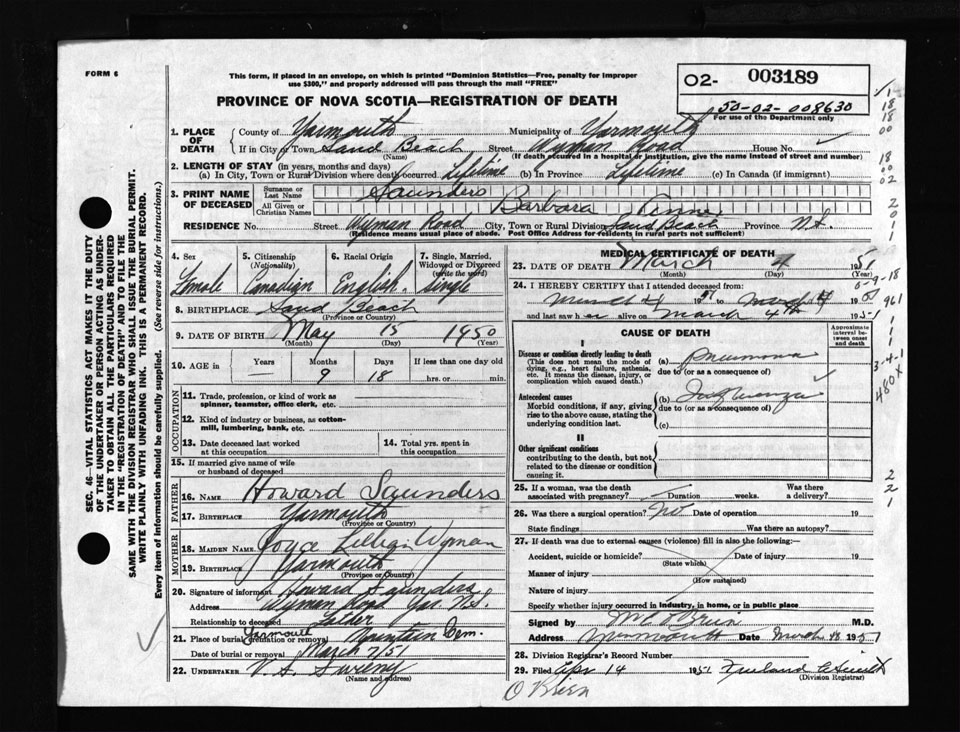 FORM 6
This form, if placed in an envelope, on which is printed "Dominion Statistics—Free, penalty for improper
use $300," and properly addressed will pass through the mail "FREE"
PROVINCE OF NOVA SCOTIA—REGISTRATION OF DEATH
02- 003189
50-02-008630
For use of the Department only
1. PLACE OF DEATH
County of Yarmouth Municipality of Yarmouth
If in City or Town Sand Beach Street Wyman Road House No.
(Name) (If death occurred in a hospital or institution, give the name instead of street and number)
2. LENGTH OF STAY (in years, months and days)
(a) In City, Town or Rural Division where death occurred Lifetime (b) In Province Lifetime (c) In Canada (if immigrant)
3. PRINT NAME OF DECEASED
Surname or Last Name Saunders
All Given or Christian Names Barbara Anne
RESIDENCE No. Street Wyman Road City, Town or Rural Division Sand Beach Province N.S.
(Residence means usual place of abode. Post Office Address for residents in rural parts not sufficient)
4. Sex Female
5. Citizenship (Nationality) Canadian
6. Racial Origin English
7. Single, Married, Widowed or Divorced (write the word) Single
8. BIRTHPLACE Sand Beach
(Province or Country)
9. DATE OF BIRTH May 15 1950
(Month) (Day) (Year)
10. AGE Years — Months 9 Days 18 If less than one day old
hrs. or min.
OCCUPATION
11. Trade, profession, or kind of work as
spinner, teamster, office clerk, etc.
12. Kind of industry or business, as cotton-
mill, lumbering, bank, etc.
13. Date deceased last worked
at this occupation
14. Total yrs. spent in
this occupation
15. If married give name of wife
or husband of deceased
FATHER
16. NAME Howard Saunders
17. BIRTHPLACE Yarmouth
(Province or Country)
MOTHER
18. MAIDEN NAME Joyce Wyman
19. BIRTHPLACE Yarmouth
(Province or Country)
20. Signature of informant Howard Saunders
Address Wyman Road Yar. N.S.
Relationship to deceased
21. Place of burial, cremation or removal Yarmouth Mountain Cem.
Date of burial or removal March 7/51
22. UNDERTAKER V. S. Sweeny
(Name and address)
MEDICAL CERTIFICATE OF DEATH
23. DATE OF DEATH March 4 1951
(Month) (Day) (Year)
24. I HEREBY CERTIFY that I attended deceased from:
March 4 1951 to March 4 1951
and last saw h alive on March 4th 1951
CAUSE OF DEATH
Approximate interval between onset and death
I
Disease or condition directly leading to death
(This does not mean the mode of
dying, e.g., heart failure, asthenia,
etc. It means the disease, injury, or
complication which caused death.)
(a) Pneumonia
due to (or as a consequence of)
Antecedent causes
Morbid conditions, if any, giving
rise to the above cause, stating the
underlying condition last.
(b) Influenza
due to (or as a consequence of)
(c)
II
Other significant conditions
contributing to the death, but not
related to the disease or condition
causing it.
25. If a woman, was the death
associated with pregnancy? Duration weeks. Was there
a delivery?
26. Was there a surgical operation? No Date of operation 19
State findings Was there an autopsy?
27. If death was due to external causes (violence) fill in also the following:—
Accident, suicide or homicide? Date of injury 19
(State which)
Manner of injury
(How sustained)
Nature of injury
Specify whether injury occurred in industry, in home, or in public place
Signed by O'Brien M.D.
Address Date March 1951
28. Division Registrar's Record Number
29. Filed Apr 14 1951
(Division Registrar)
O'Brien
SEC. 46—VITAL STATISTICS ACT MAKES IT THE DUTY
OF THE UNDERTAKER OR PERSON ACTING AS UNDER-
TAKER TO OBTAIN ALL THE PARTICULARS REQUIRED
IN THE "REGISTRATION OF DEATH" AND TO FILE THE
SAME WITH THE DIVISION REGISTRAR WHO SHALL ISSUE THE BURIAL PERMIT.
WRITE PLAINLY WITH UNFADING INK. THIS IS A PERMANENT RECORD.
Every item of information should be carefully supplied. (See reverse side for instructions.)
1
18
18
00
18
00
02
2
0
1
1
5-9-18
961
1
1
1
3-4-1
480X
2
2
1